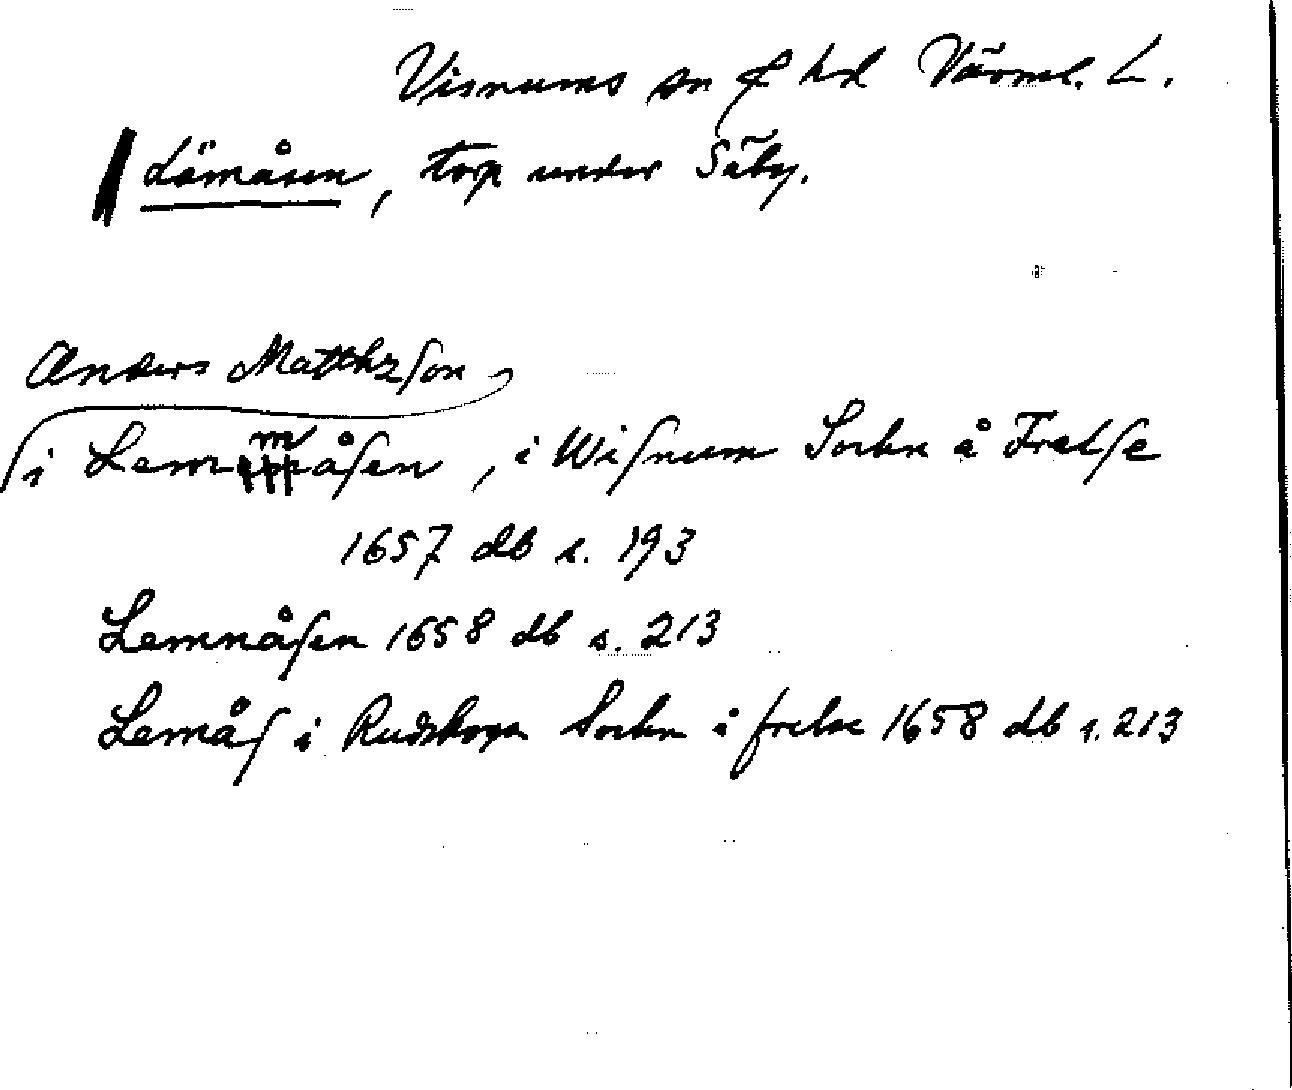 Visnums sn & hd Värml. L.
Lömåsen, torp under Säby.
Anders Matthzson
i Lemmåsen, i Wisnum Sockn å Frelse
1657 db s. 193
Lemnåsen 1658 db s. 213
Lemås i Rudskoga Sockn å frelse 1658 db s. 213